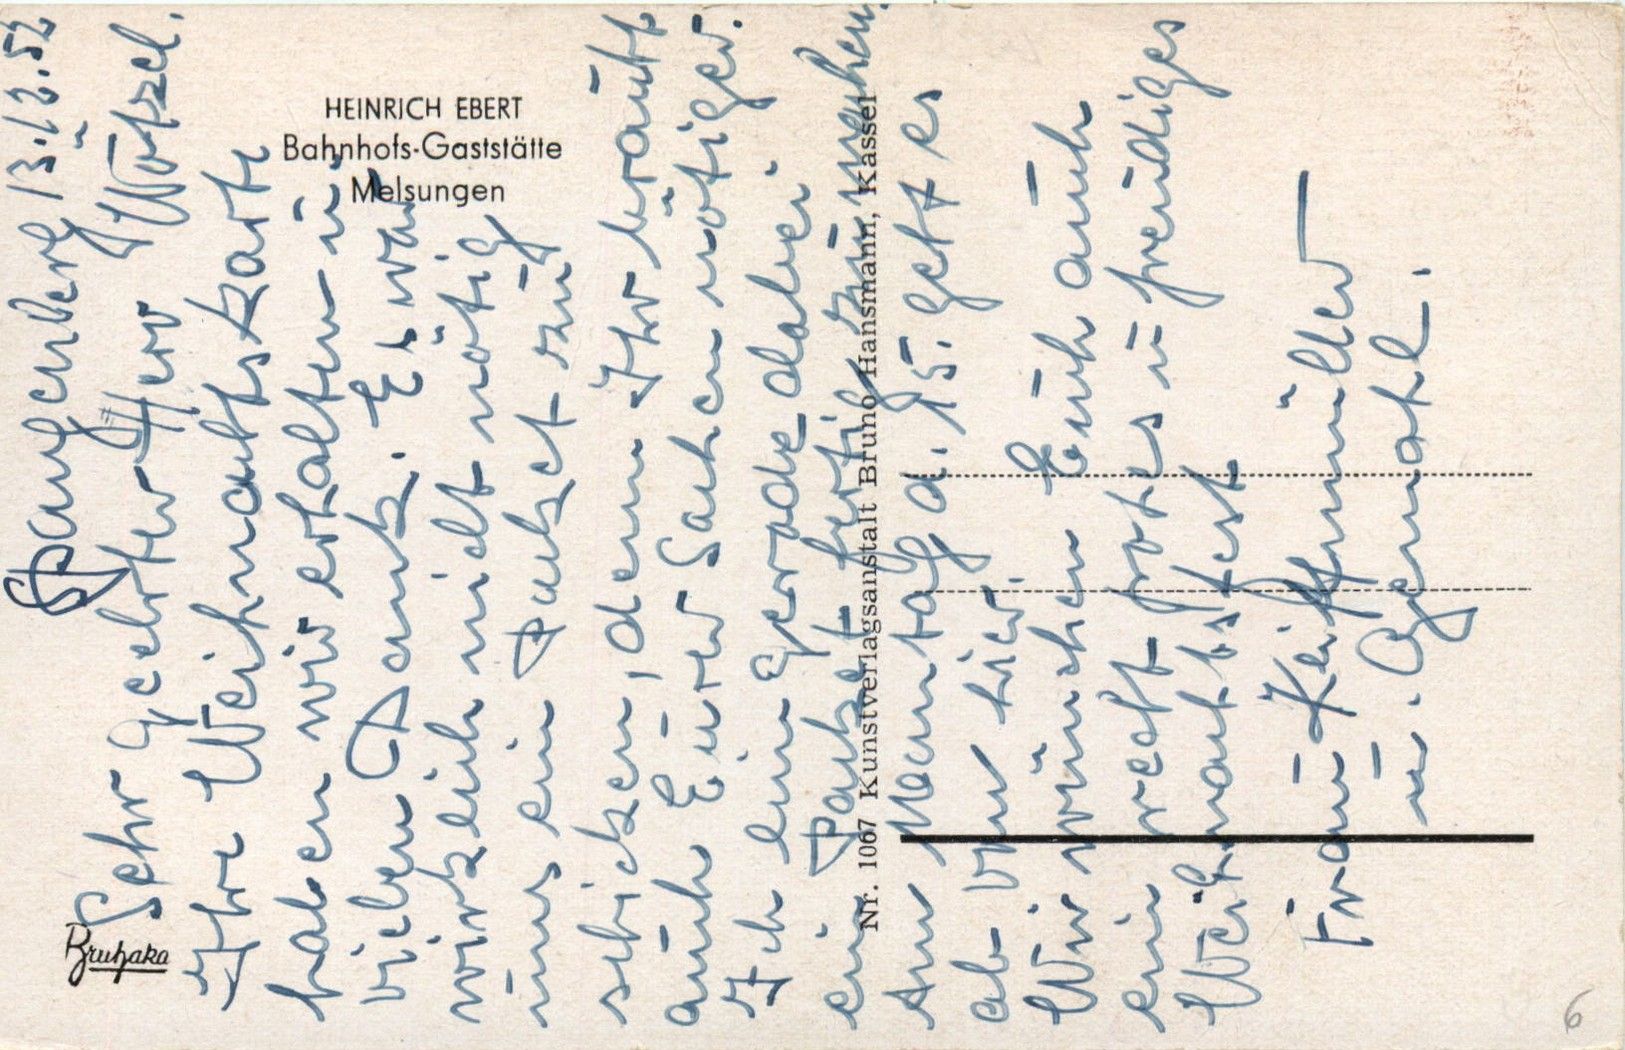 Spangenberg 13.12.52
Sehr geehrter Herr Wötzel.
Ihre Weihnachtskarte
haben wir erhalten u.
vielen Dank. Es war
wirklich nicht nötig
uns ein Packet zu
schicken, denn Ihr braucht
auch Eurer Sachen nötiger.
Ich bin gerade dabei
ein Packet fertig zu machen.
Am Montag d. 15. geht es
ab von hier.
Wir wünschen Euch auch
ein recht frohes u. freudiges
Weihnachtsfest
Frau
u. Gemahl.
HEINRICH EBERT
Bahnhofs-Gaststätte
Melsungen
Nr. 1067 Kunstverlagsanstalt Bruno Hansmann, Kassel
Bruhaka
6